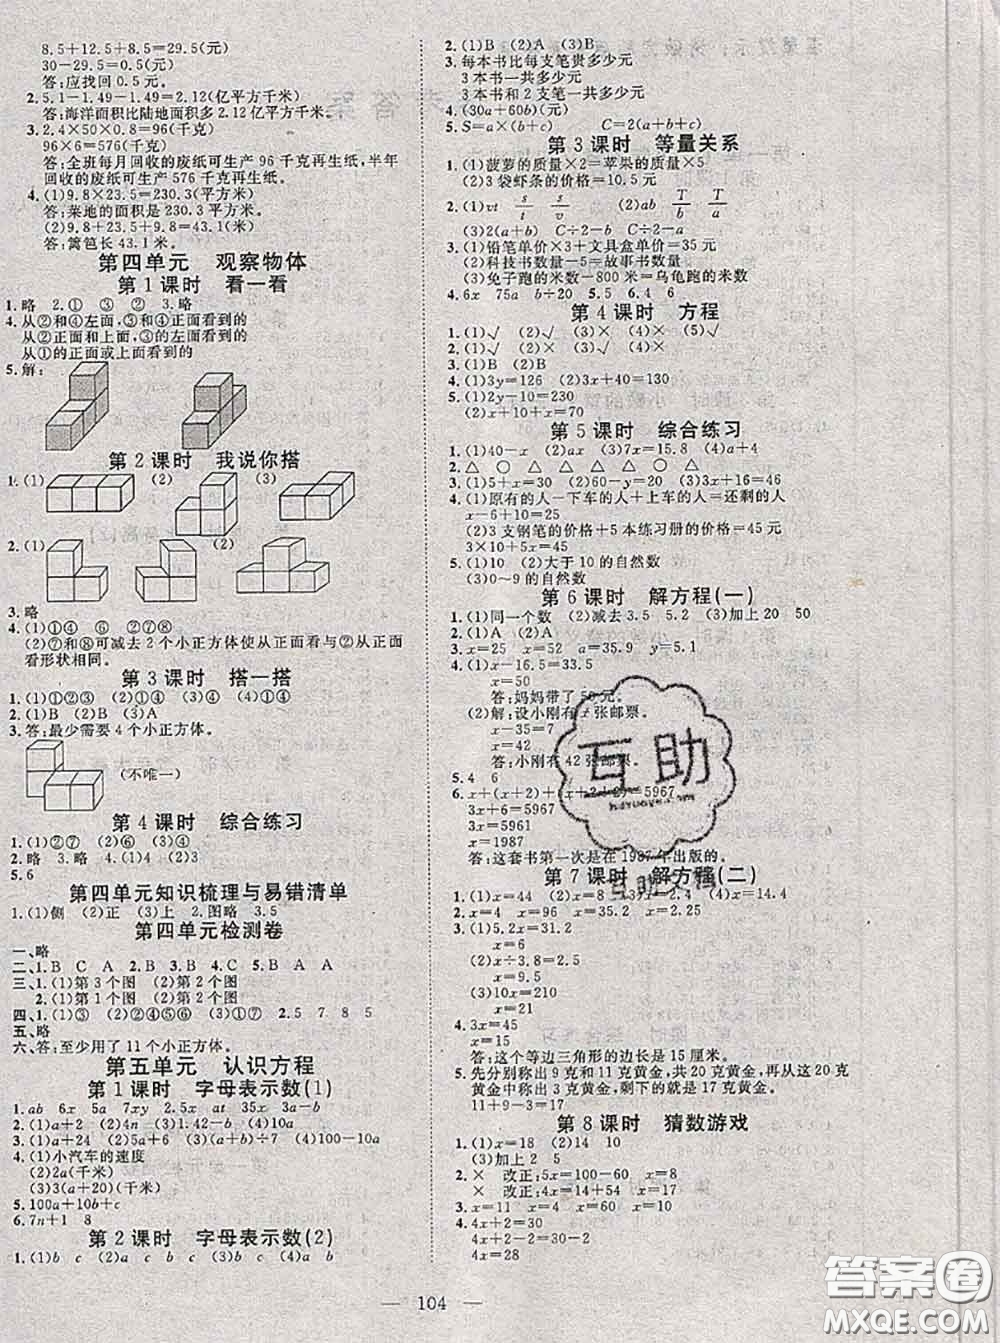 8.5+12.5+8.5=29.5(元)
30-29.5=0.5(元)
答:应找回 0.5 元。
2. 5.1-1.49-1.49=2.12(亿平方千米)
答:海洋面积比陆地面积多 2.12 亿平方千米。
3. 2.4×50×0.8=96(千克)
96×6=576(千克)
答:全班每月回收的废纸可生产 96 千克再生纸,半年
回收的废纸可生产 576 千克再生纸。
4. (1)9.8×23.5=230.3(平方米)
答:菜地的面积是 230.3 平方米。
(2)9.8+23.5+9.8=43.1(米)
答:篱笆长 43.1 米。
第四单元 观察物体
第 1 课时 看一看
1. 略 2. ① ③ ② 3. 略
4. 从②和④左面,③和④正面看到的
从②正面和上面,③的上面看到的
从①的正面或上面看到的
5. 解:
第 2 课时 我说你搭
1. (1) (2) (3)
2. (1) (2)
3. 略
4. (1)①④ ⑥ ②⑦⑧
(2)⑦和⑧可减去 2 个小正方体使从正面看与②从正面
看形状相同。
第 3 课时 搭一搭
1. (1)①②③ (2)①④ (3)②④ (4)①④
2. (1)B (2)B (3)A
3. 答:最少需要 4 个小正方体。
(不唯一)
第 4 课时 综合练习
1. (1)①②⑦ (2)②⑥ (3)④
2. 略 3. 略 4. (1)2 (2)3
5. 6
第四单元知识梳理与易错清单
1. (1)侧 (2)正 (3)上 2. 图略 3. 5
第四单元检测卷
一、略
二、1. B C A 2. B 3. B 4. C 5. B A A
三、1. (1)第 3 个图 (2)第 2 个图
2. (1)第 1 个图 (2)第 2 个图
四、1. (1)③ (2)②④⑤⑥ (3)①⑦ 2. 5 7 8 5
五、略
六、答:至少用了 11 个小正方体。
第五单元 认识方程
第 1 课时 字母表示数(1)
1. ab 6x 5a 7xy 2. 5x at 35x 3a
2. (1)a+2 (2)4-b (3)1.42-b (4)a-10
3. (1)24+x (2)9-c (3)(a+b)÷7 (4)100-10a
4. (1)小汽车的速度
(2)2a(千米)
(3)3(a+20)(千米)
5. 100a+10b+c
6. 7n+1 8
第 2 课时 字母表示数(2)
1. (1)b c (2)a c b c (3)b c (4)a b
2. (1)B (2)A (3)B
3. 每本书比每支笔贵多少元
3 本书一共多少元
3 本书和 2 支笔一共多少元
4. (30a+60b)(元)
5. S=a×(b+c) C=2(a+b+c)
第 3 课时 等量关系
1. (1)菠萝的质量×2=苹果的质量×5
(2)3 袋虾条的价格=10.5 元
2. (1)vt s/t s/v (2)ab T/b T/a
(3)2(a+b) C÷2-b C÷2-a
3. (1)铅笔单价×3+文具盒单价=35 元
(2)科技书数量-5=故事书数量×2
(3)兔子跑的米数-800 米=乌龟跑的米数
4. 6x 75a b÷20 5. 5 6. 4 6
第 4 课时 方程
1. (1)√ (2)× (3)× (4)× (5)√
2. (1)√ (2)× (3)√ (4)×
3. (1)B (2)B
4. (1)3y=126 (2)3x+40=130
5. (1)2y-10=230
(2)x+10+x=70
第 5 课时 综合练习
1. (1)40-x (2)5x (3)7a (4)a+4
2. △ ○ △ ○ △ △ ○ ○
3. (1)5+x=30 (2)4x=60 (3)7x=161
4. (1)原有的人-下车的人+上车的人=还剩的人
x-6+10=25
(2)3 支钢笔的价格+5 本练习册的价格=45 元
3×10+5x=45
5. (1)0 (2)大于 10 的自然数
(3)0~9 的自然数
第 6 课时 解方程(一)
1. (1)同一个数 (2)减去 3.5 5.2 (3)加上 20 50
2. (1)A (2)A
3. x=25 x=52 a=35.9 x=5.1
4. (1)x-16.5=33.5
x=50
答:妈妈带了 50 元。
(2)解:设小刚有 x 张邮票。
x-35=7
x=42
答:小刚有 42 张邮票。
5. 4 6
6. x+(x+2)+(x+2+2)=5967
3x+6=5967
3x=5961
x=1987
答:这套书第一次是在 1987 年出版的。
第 7 课时 解方程(二)
1. (1)x=44 (2)x=8 (3)x=3 (4)x=14.4
2. x=4 x=96 x=5 x=1.6
3. (1)5.2x=31.2
x=6
(2)x÷3.8=2.5
x=9.5
(3)10x=210
x=21
4. 3x=45
x=15
答:这个等边三角形的边长是 15 厘米。
5. 先分别称出 9 克和 11 克黄金,共 20 克黄金,再从这 20 克
黄金中称出 3 克黄金,剩下的就是 17 克黄金。
11+9-3=17
第 8 课时 猜数游戏
1. (1)x=18 (2)14 10
(3)加上 2 5
2. × 改正:5x=100-60 x=8
× 改正:4x=14+54 x=17
3. x=11 x=4 x=4 x=5
4. 4x+2=30
4x=28
互助
互助文稿
104
答案圈
MXQE.COM